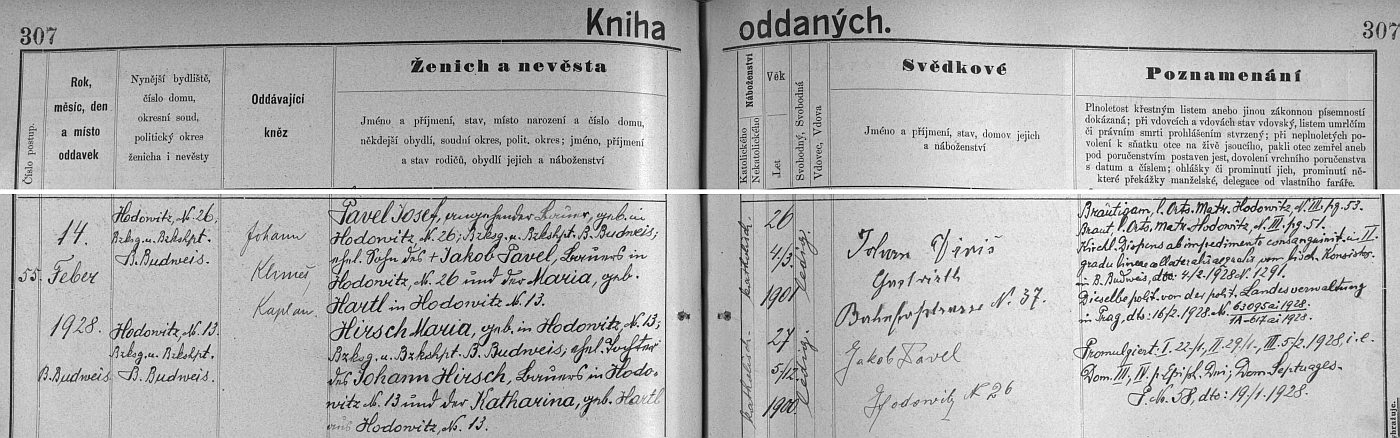 307
Kniha oddaných.
307
Číslo postup.
Rok,
měsíc, den
a místo
oddavek
Nynější bydliště,
číslo domu,
okresní soud,
politický okres
ženicha i nevěsty
Oddávající
kněz
Ženich a nevěsta
Jméno a příjmení, stav, místo narození a číslo domu,
někdejší obydlí, soudní okres, polit. okres; jméno, příjmení
a stav rodičů, obydlí jejich a náboženství
Náboženství
Katolického
Nekatolického
Věk
Let
Svobodný, Svobodná
Vdovec, Vdova
Svědkové
Jméno a příjmení, stav, domov jejich
a náboženství
Poznamenání
Plnoletost křestným listem anebo jinou zákonnou písemností
dokázaná; při vdovcích a vdovách stav vdovský, listem umrlčím
či právním smrti prohlášením stvrzený; při neplnoletých po-
volení k sňatku otce na živě jsoucího, pakli otec zemřel aneb
pod poručenstvím postaven jest, dovolení vrchního poručenstva
s datum a číslem; ohlášky či prominutí jich, prominutí ně-
které překážky manželské, delegace od vlastního faráře.
55.
14.
Feber
1928.
B. Budweis
Hodowitz, N. 26;
Bzksg. u. Bzkshpt.
B. Budweis.
Hodowitz, N. 13.
Bzksg. u. Bzkshpt.
B. Budweis.
Johann
Klimeš,
Kaplan.
Pavel Josef, angehender Bauer, geb. in
Hodowitz, N. 26; Bzksg. u. Bzkshpt. B. Budweis;
ehel. Sohn des † Jakob Pavel, Bauers in
Hodowitz, N. 26 und der Maria, geb.
Hartl in Hodowitz N. 13.
Hirsch Maria, geb. in Hodowitz, N. 13;
Bzksg. u. Bzkshpt. B. Budweis, ehel. Tochter
des Johann Hirsch, Bauers in Hodo-
witz N. 13 und der Katharina, geb. Hartl
aus Hodowitz, N. 13.
katholisch.
26
4/3
1901
ledig.
katholisch.
27
5/12
1900
ledig.
Johann
Gastwirth
Bahnhofstrasse N. 37.
Jakob Pavel
Hodowitz N 26
Bräutigam, l. Orts. Matr. Hodowitz, N. III. pg. 53.
Braut l. Orts. Matr. Hodowitz, N. III. pg. 51.
Kirchl. Dispens ab impedimento consanguinit. in II.
gradu lineae collateralis aequalis vom bisch. Konsistor.
in B. Budweis, dto: 4/2. 1928 N. 1291.
Dieselbe polit. von der polit. Landesverwaltung
in Prag, dto: 16/2. 1928 N. 63095 ai 1928.
1A-617 ai 1928.
Promulgiert: I. 22/1., II. 29/1., III. 5/2. 1928, i. e.
Dom. III, IV. p. Epiph. Dni; Dom. Septuages.-
dto: 19/1. 1928.